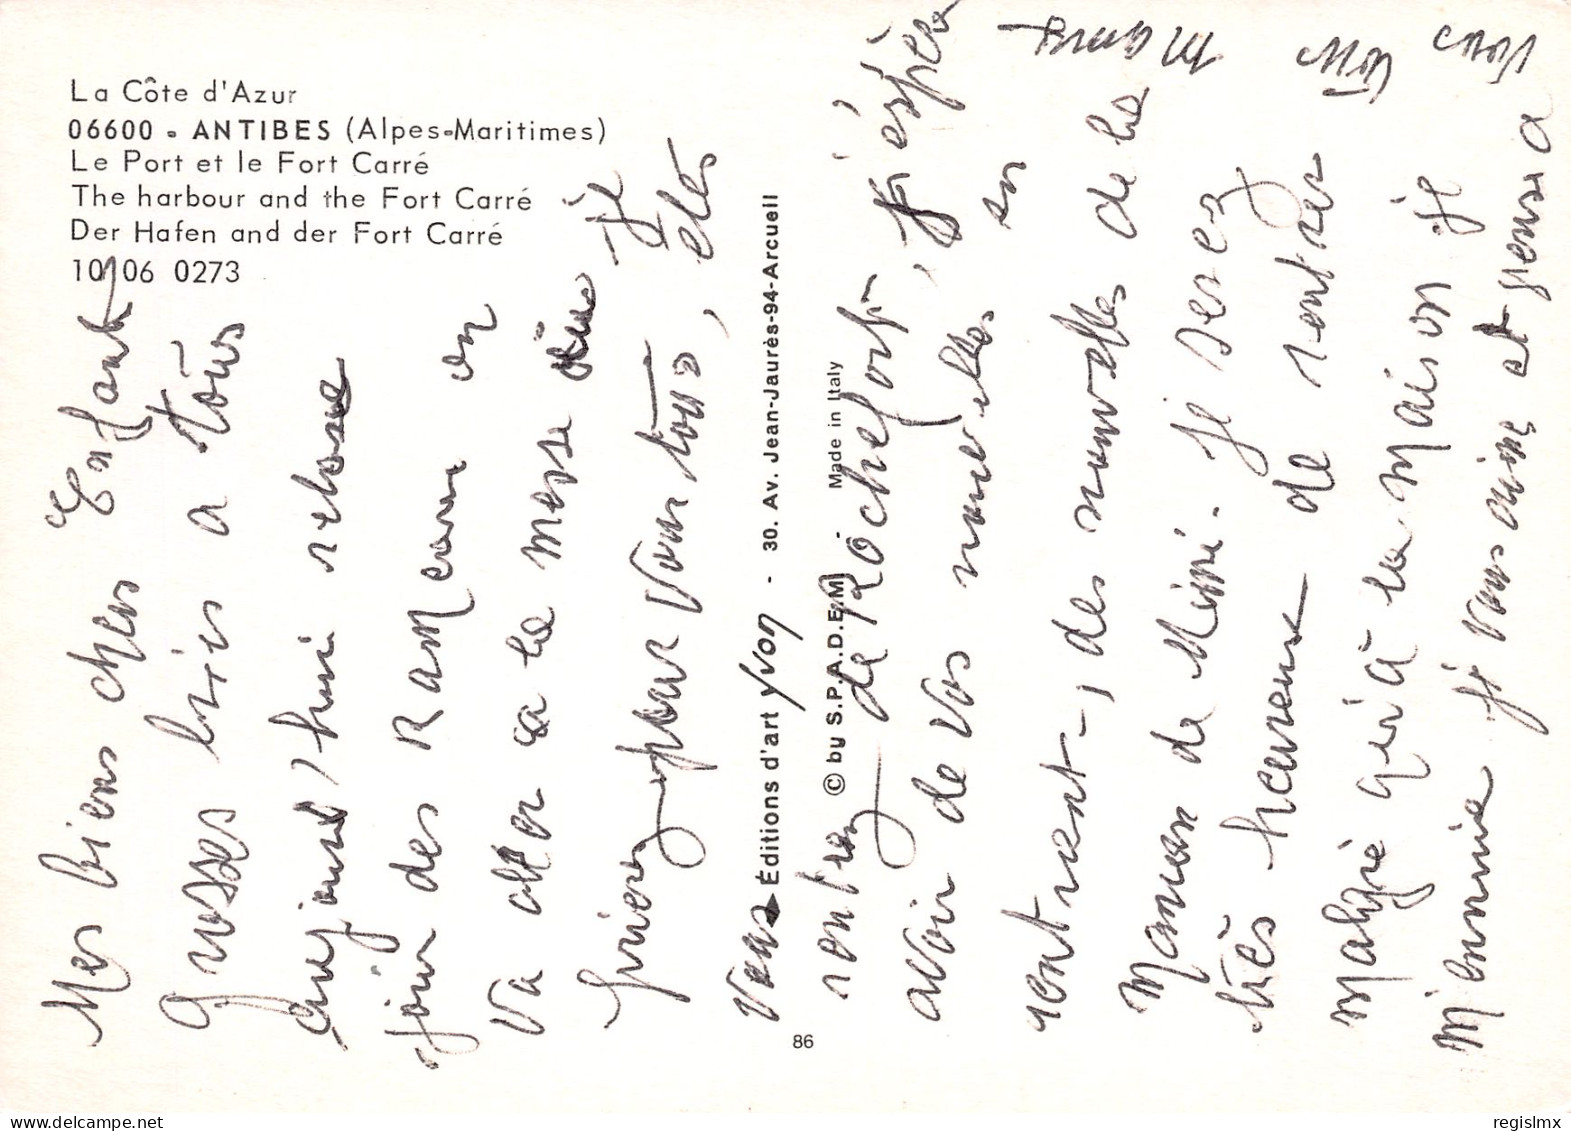 La Côte d'Azur
06600 - ANTIBES (Alpes-Maritimes)
Le Port et le Fort Carré
The harbour and the Fort Carré
Der Hafen and der Fort Carré
10 06 0273
Mes biens chers Enfants
Grosses bises a tous
aujourd'hui relosse
jour des Rameau on
Va aller a la messe
prierez pour Vous tous, etes
Vous
rentrez de Rochefort, j'éspère
avoir de vos nouvelles en
rentrent, des nouvelles de la
Maman de Mimi. Je serez
très heureux de rentrer
Malgré qui à la maison je
M'ennuie je vous aime et pense a
Vous tous Mamy
Éditions d'art yvon - 30. Av. Jean-Jaurès-94-Arcueil
© by S.P.A.D.E.M. - Made in Italy
86
regislmx